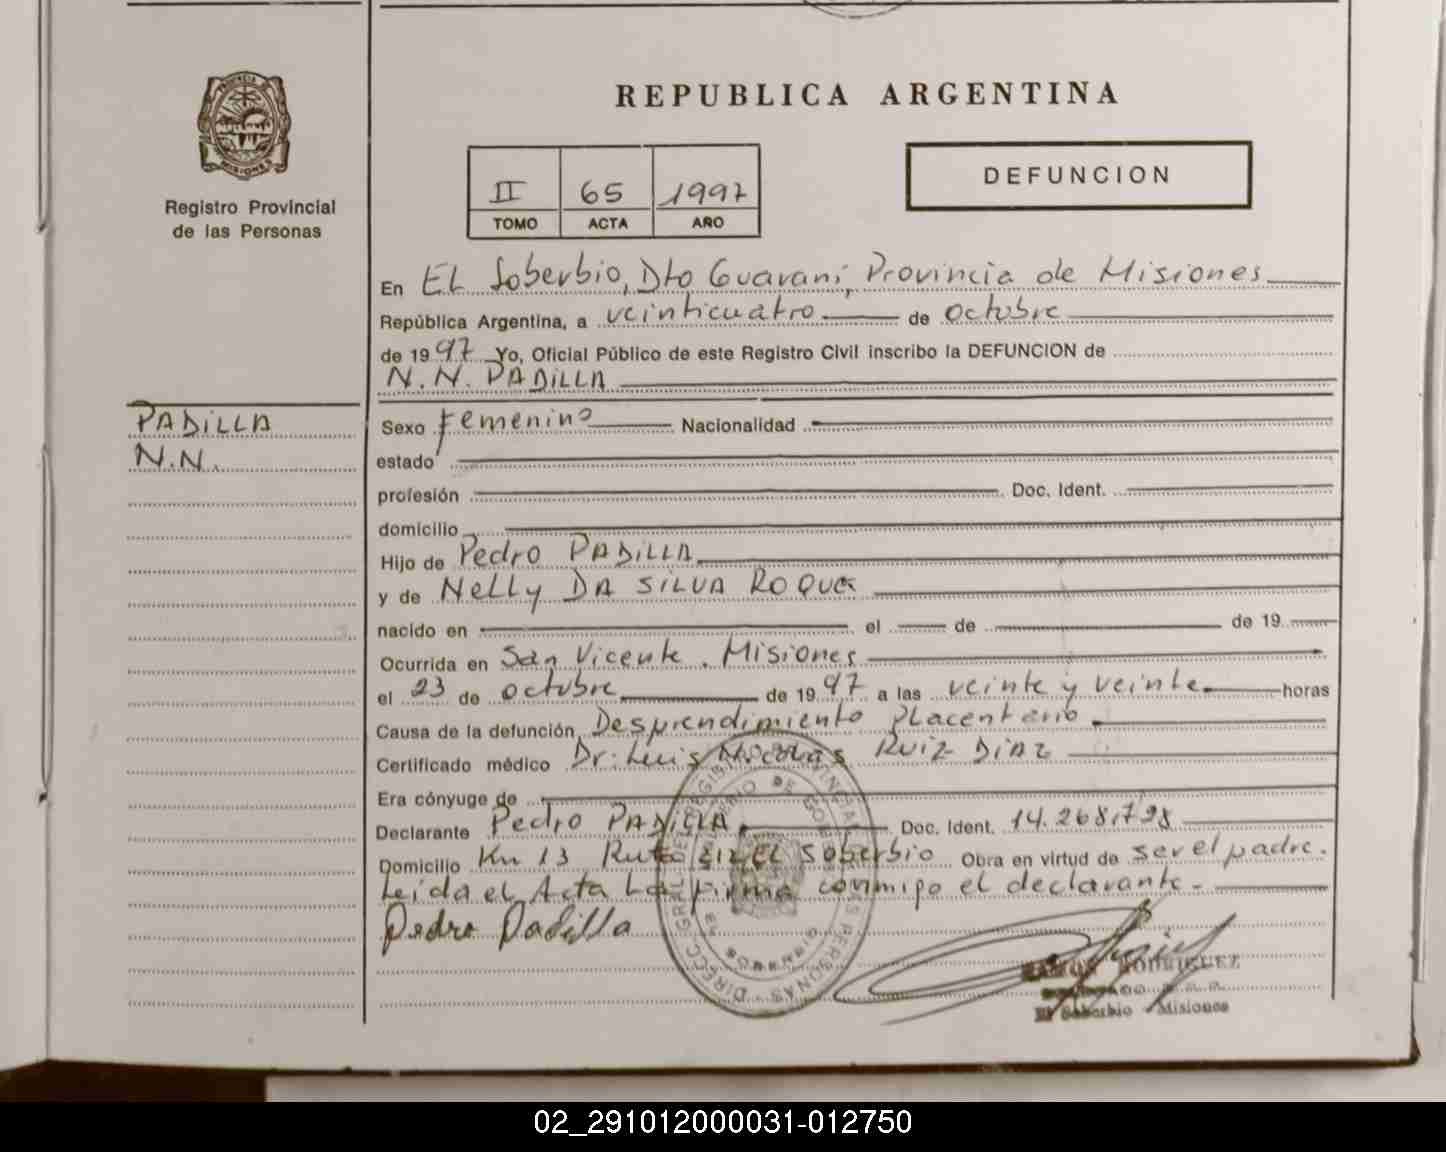 REPUBLICA ARGENTINA
DEFUNCION
II 65 1997
TOMO ACTA AÑO
Registro Provincial
de las Personas
PADILLA
N.N.
En EL Soberbio, Dto Guaraní, Provincia de Misiones
República Argentina, a veinticuatro de octubre
de 1997 Yo, Oficial Público de este Registro Civil inscribo la DEFUNCION de
N.N. PADILLA
Sexo Femenino Nacionalidad
estado
profesión Doc. Ident.
domicilio
Hijo de Pedro PADILLA
y de Nelly DA SILVA ROQUE
nacido en el de de 19
Ocurrida en San Vicente. Misiones
el 23 de octubre de 1997 a las veinte y veinte horas
Causa de la defunción Desprendimiento Placentario
Certificado médico Dr. Luis Nicolás Ruiz Diaz
Era cónyuge de
Declarante Pedro PADILLA Doc. Ident. 14.268.798
Domicilio Km 13 Ruta EL Soberbio Obra en virtud de ser el padre.
Leída el Acta La firma conmigo el declarante.
Pedro Padilla
RAMON RODRIGUEZ
El Soberbio Misiones
02_291012000031-012750